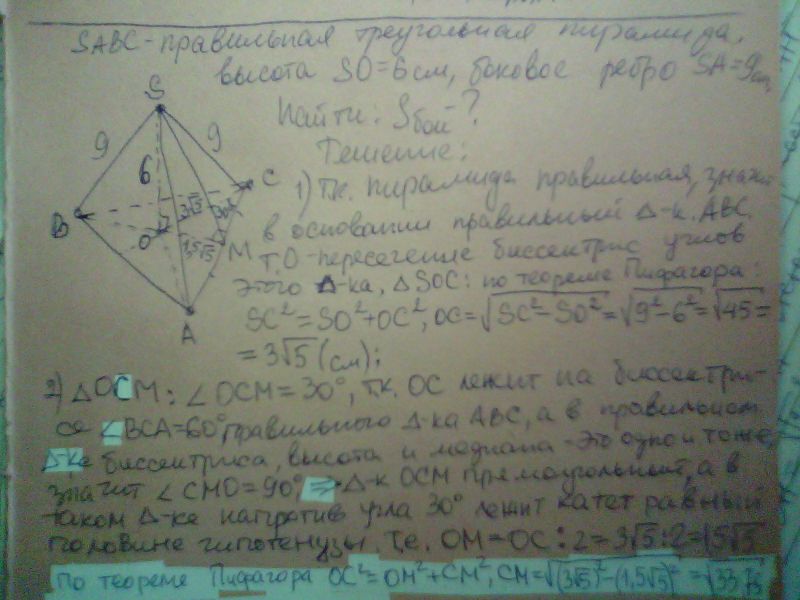 SABC - правильная треугольная пирамида,
высота SO=6см, боковое ребро SA=9см,
Найти: Sбок - ?
Решение:
S
9
9
6
C
B
2√5
30°
O
1,5√5
M
A
1) т.к. пирамида правильная, значит
в основании правильный Δ-к. ABC.
т.О-пересечение биссектрис углов
этого Δ-ка, ΔSOC: по теореме Пифагора:
SC²=SO²+OC², OC=√SC²-SO²=√9²-6²=√45=
=3√5 (см);
2) ΔOCM: ∠OCM=30°, т.к. OC лежит на биссектри-
се ∠BCA=60°, правильного Δ-ка ABC, а в правильном
Δ-ке биссектриса, высота и медиана - это одно и тоже,
значит ∠CMO=90° ⇒ Δ-к OCM прямоугольный, а в
таком Δ-ке напротив угла 30° лежит катет равный
половине гипотенузы т.е. OM=OC:2=3√5:2=1,5√5
По теореме Пифагора OC²=OM²+CM², CM=√(3√5)²-(1,5√5)²=√33,75